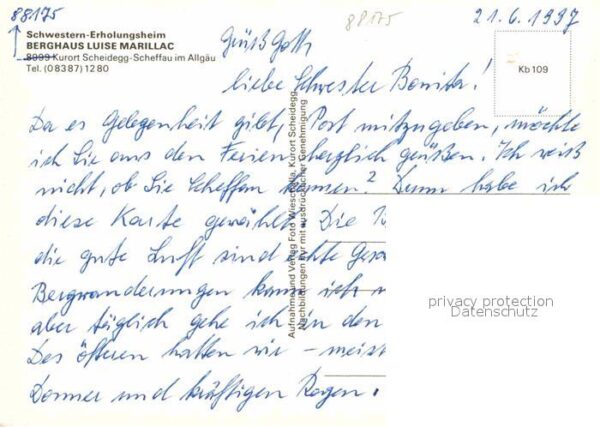 88175
88175
21.6.1997
Schwestern-Erholungsheim
BERGHAUS LUISE MARILLAC
8999 Kurort Scheidegg-Scheffau im Allgäu
Tel. (08387) 1280
Kb 109
Grüß Gott
liebe Schwester Bonita!
Da es Gelegenheit gibt, Post mitzugeben, möchte
ich Sie aus den Ferien herzlich grüßen. Ich weiß
nicht, ob Sie Scheffau kennen? Drum habe ich
diese Karte gewählt. Die
die gute Luft sind echte
Bergwanderungen kann ich
aber täglich gehe ich in den
Des öfteren hatten wir – meist
Donner und kräftigen Regen.
Aufnahme und Verlag Foto Wieschalla, Kurort Scheidegg
Nachbildungen nur mit ausdrücklicher Genehmigung
privacy protection
Datenschutz